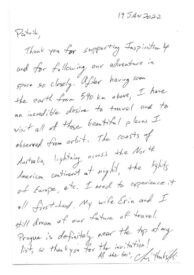 19 JAN 2022
Thank you for supporting Inspiration4
and for following our adventure in
space so closely. After having seen
the earth from 590 km above, I have
an incredible desire to travel and to
visit all of those beautiful places I
observed from orbit. The coasts of
Australia, lightning across the North
American continent at night, the lights
of Europe, etc. I need to experience it
all firsthand. My wife Erin and I
still dream of our future of travel.
Prague is definitely near the top of my
list, so thank you for the invitation!
All the best,